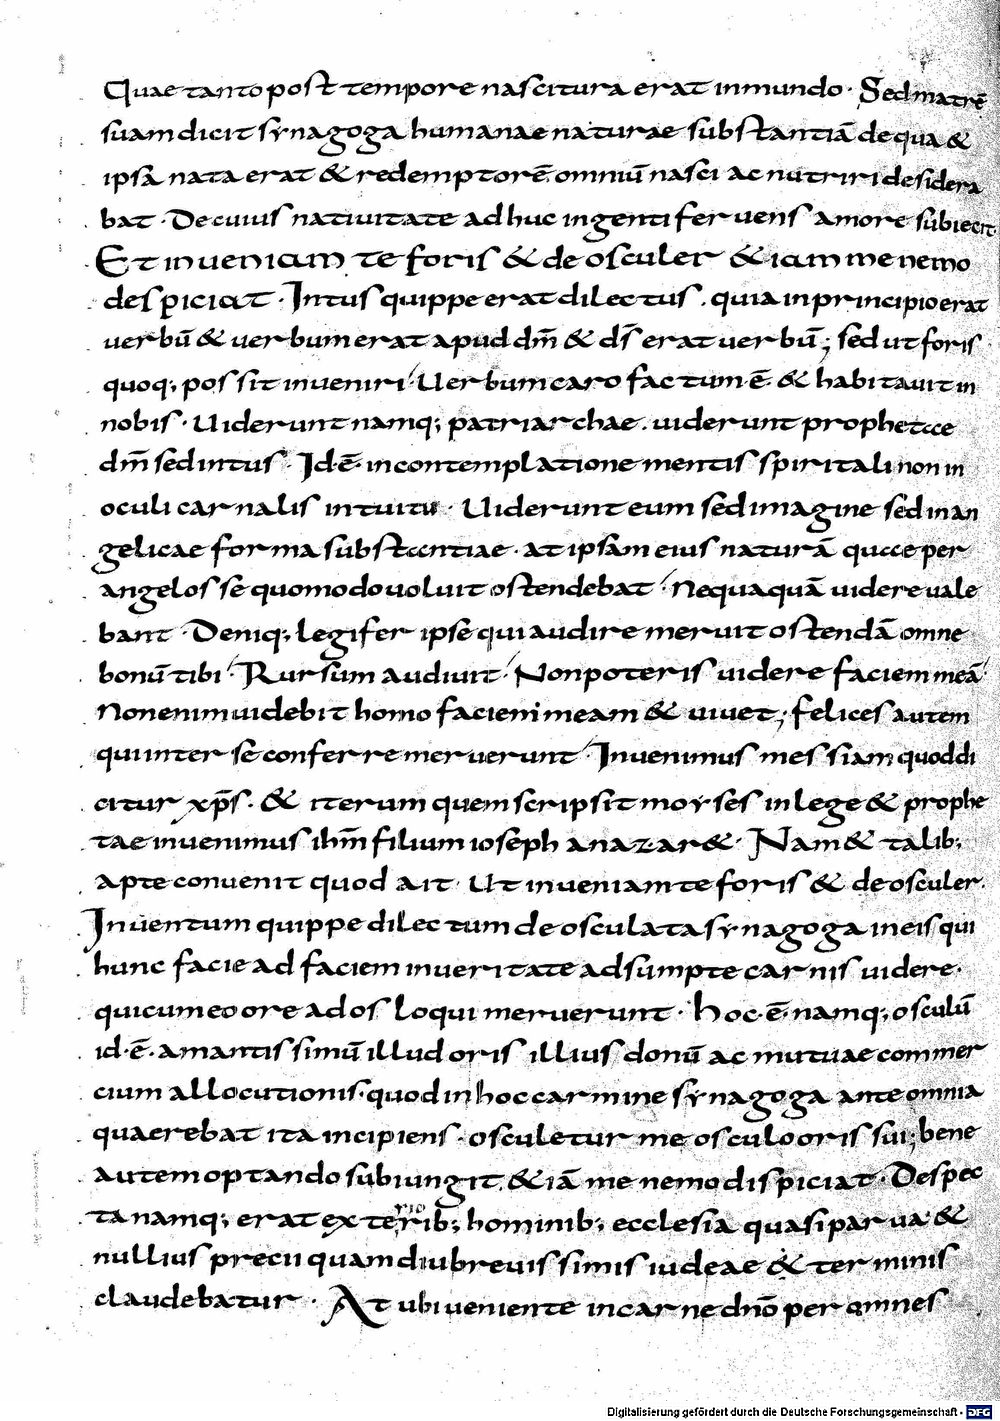 Quae tanto post tempore nascitura erat inmundo · Sed matrē
suam dicit synagoga humanae naturae substantiā de qua &
ipsa nata erat & redemptorē omniū nasci ac nutriri desidera
bat · De cuius natiuitate adhuc ingenti feruens amore subiecit·
Et inueniam te foris & deosculer & iam me nemo
despiciat · Intus quippe erat dilectus . quia in principio erat
uerbū & uerbum erat apud dm̄ & ds̄ erat uerbū ; sed ut foris
quoq; possit inueniri · Uerbum caro factum ē · & habitauit in
nobis · Uiderunt namq; patriarchae . uiderunt prophetae
dm̄ sed intus · Id·ē· in contemplatione mentis spiritali non in
oculi carnalis intuitu · Uiderunt eum sed imagine sed in an
gelicae forma substantiae · at ipsam eius naturā quae per
angelos se quomodo uoluit ostendebat · Nequaquā uidere uale
bant · Deniq; legifer ipse qui audire meruit ostendā omne
bonū tibi · Rursum audiuit · Non poteris uidere faciem meā ·
Non enim uidebit homo faciem meam & uiuet ; felices autem
qui inter se conferre meruerunt · Inuenimus messiam quod di
citur xp̄s . & iterum quem scripsit moyses in lege & prophe
tae inuenimus ihm̄ filium ioseph a nazar& · Nam & talib;
apte conuenit quod ait · Ut inueniam te foris & deosculer.
Inuentum quippe dilectum deosculata synagoga in eis qui
hunc facie ad faciem in ueritate adsumpte carnis uidere ·
qui cum eo ore ad os loqui meruerunt · hoc·ē· namq; osculū
id·ē· amantissimū illud oris illius donū ac mutuae commer
cium allocutionis · quod in hoc carmine synagoga ante omnia
quaerebat ita incipiens · osculetur me osculo oris sui ; bene
autem optando subiungit . & iā me nemo dispiciat · Despec
ta namq; erat exterib; hominib; ecclesia quasi parua · &
rio
nullius precii quamdiu breuissimis iudeae & terminis
claudebatur · At ubi ueniente in carne dn̄o per omnes
Digitalisierung gefördert durch die Deutsche Forschungsgemeinschaft - DFG